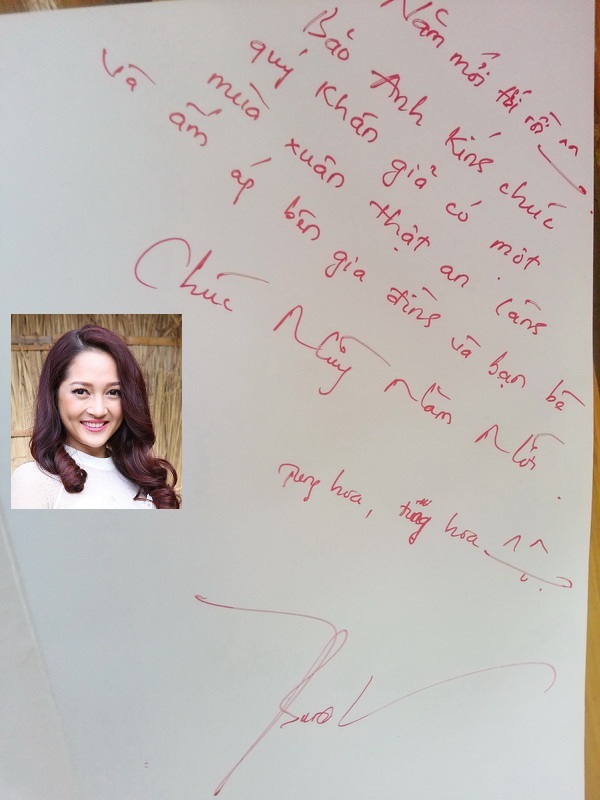 Năm mới tới rồi ^^
Bảo Anh kính chúc
quý khán giả có một
mùa xuân thật an lành
và ấm áp bên gia đình và bạn bè
Chúc Mừng Năm Mới
Tung hoa, tung hoa ^^